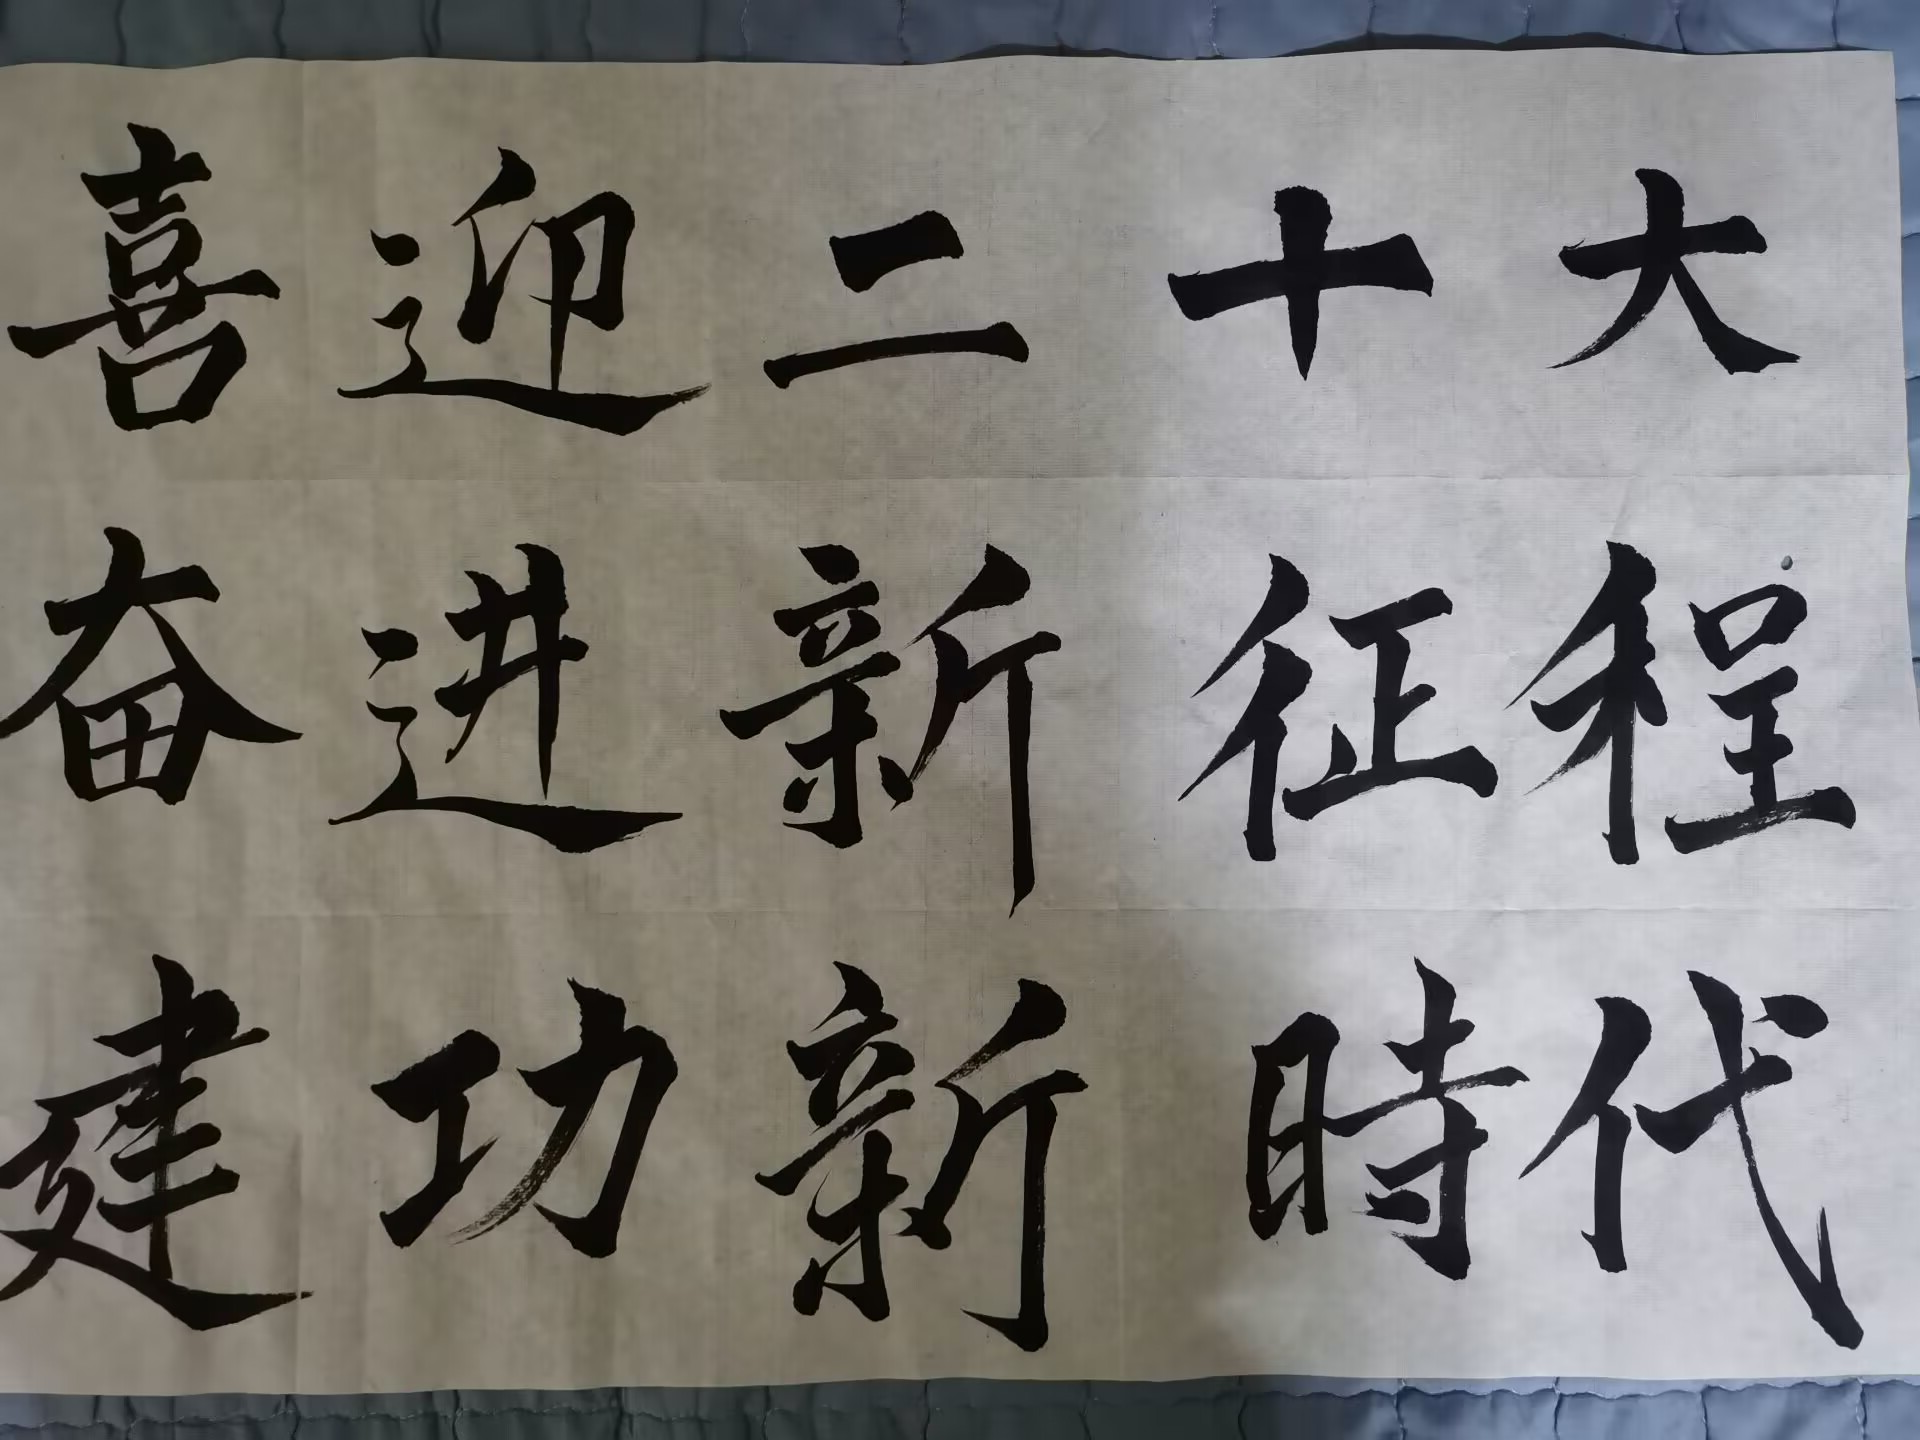 喜迎二十大
奋进新征程
建功新時代